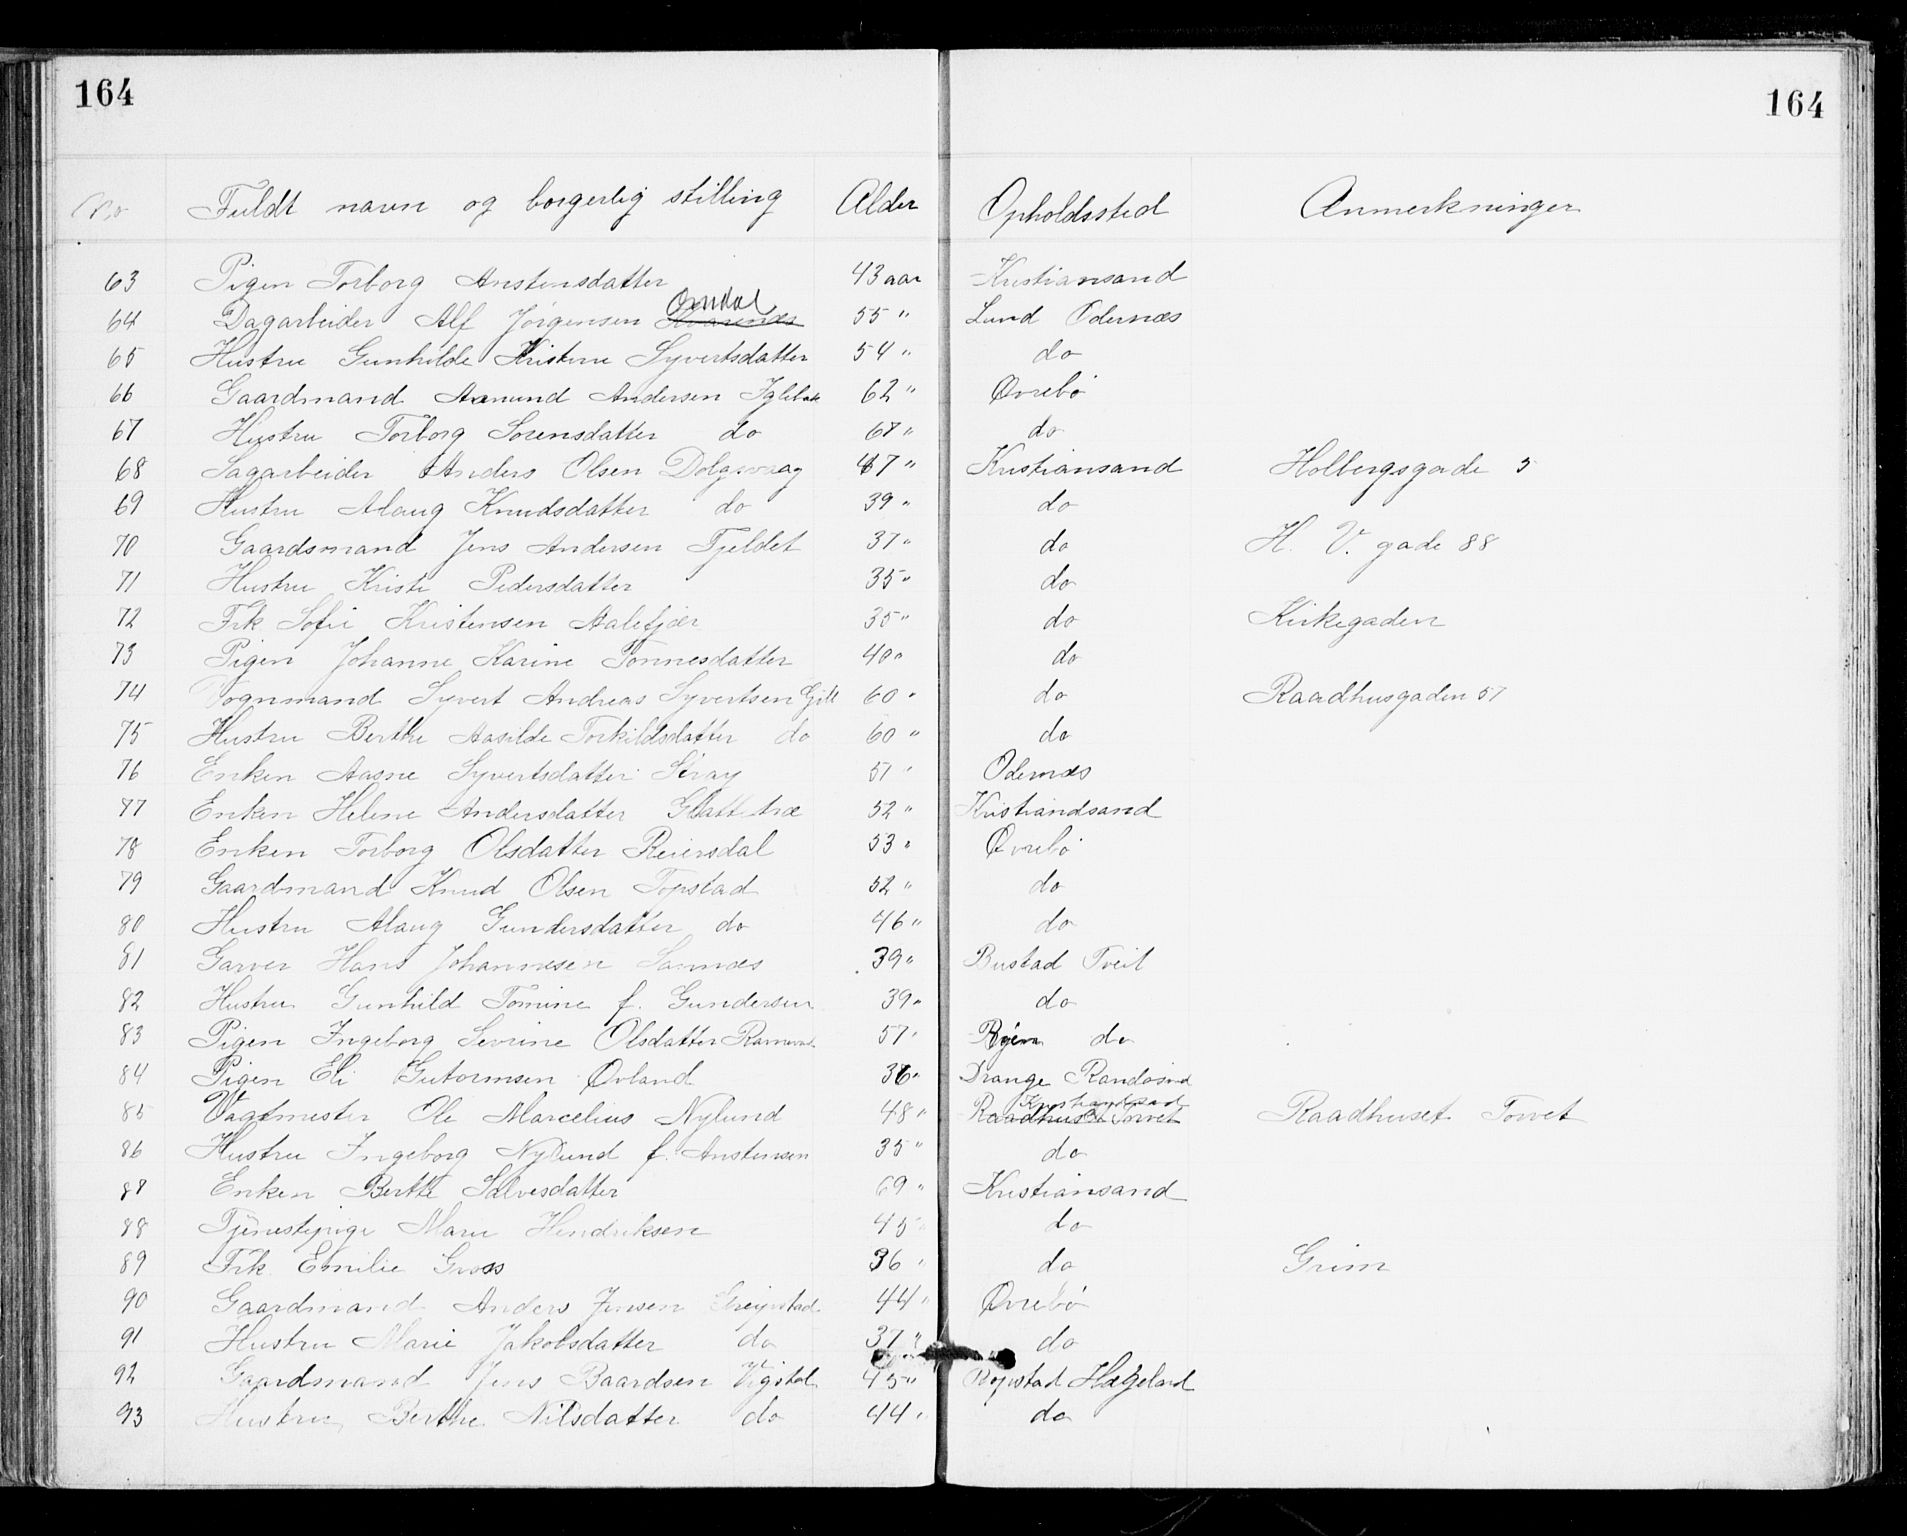 164 164
No Fuldt navn og borgerlig stilling Alder Opholdssted Anmerkninger
63 Pigen Torborg Anstensdatter 43 aar Kristiansand
64 Dagarbeider Alf Jørgensen Omdal 55 " Lund Odernæs
65 Hustru Gunhilde Kristine Syvertsdatter 54 " do
66 Gaardmand Aanund Andersen Iglebæk 62 " Øvrebø
67 Hustru Torborg Sørensdatter do 67 " do
68 Sagarbeider Anders Olsen 47 " Kristiansand Holbergsgade 5
69 Hustru Alaug Knudsdatter do 39 " do
70 Gaardsmand Jens Andersen Fjeldet 37 " do H. V. gade 88
71 Hustru Kristi Pedersdatter 35 " do
72 Frk Sofie Kristensen Aalefjær 35 " do Kirkegaden
73 Pigen Johanne Karine Tønnesdatter 40 " do
74 Vognmand Syvert Andreas Syvertsen 60 " do Raadhusgaden 57
75 Hustru Berthe Aasilde Torkildsdatter do 60 " do
76 Enken Aasne Syvertsdatter Stray 51 " Odernæs
77 Enken Helene Andersdatter Glattetræ 52 " Kristiandsand
78 Enken Torborg Olsdatter Reiersdal 53 " Øvrebø
79 Gaardmand Knud Olsen Topstad 52 " do
80 Hustru Alaug Gundersdatter do 46 " do
81 Garver Hans Johannesen Sannæs 39 " Bustad Tveit
82 Hustru Gunhild Tomine f. Gundersen 39 " do
83 Pigen Ingeborg Severine Olsdatter 57 " Ryen do
84 Pigen Eli Gutormsen Øvland 36 " Drange Randøsund
85 Vagtmester Ole Marcelius Nylund 48 " Raadhuset Torvet Kristiansand Raadhuset Torvet
86 Hustru Ingeborg Nylund f. Anstensen 35 " do
87 Enken Berthe Salvesdatter 69 " Kristiansand
88 Tjenestepige Marie Hendriksen 45 " do
89 Frk. Emilie Gross 36 " do Grim
90 Gaardmand Anders Jensen Greipstad 44 " Øvrebø
91 Hustru Marie Jakobsdatter do 37 " do
92 Gaardmand Jens Baardsen Vigstøl 45 " Hægeland
93 Hustru Berthe Nilsdatter do 44 " do